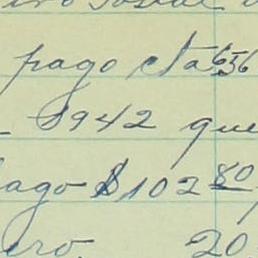 pago cta 656
$942 que
pago $102 80
ero. 20